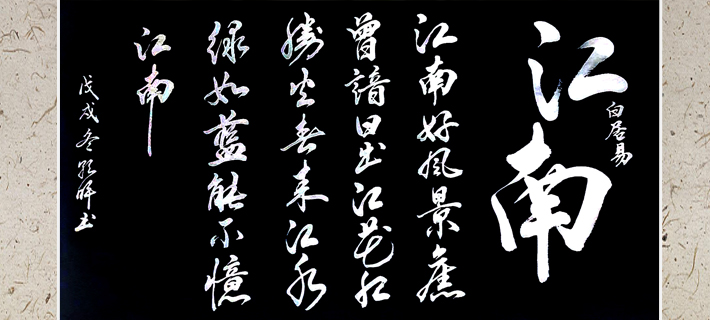 江南
白居易
江南好風景舊
曾諳日出江花红
勝火春来江水
绿如藍能不憶
江南
戊戌冬